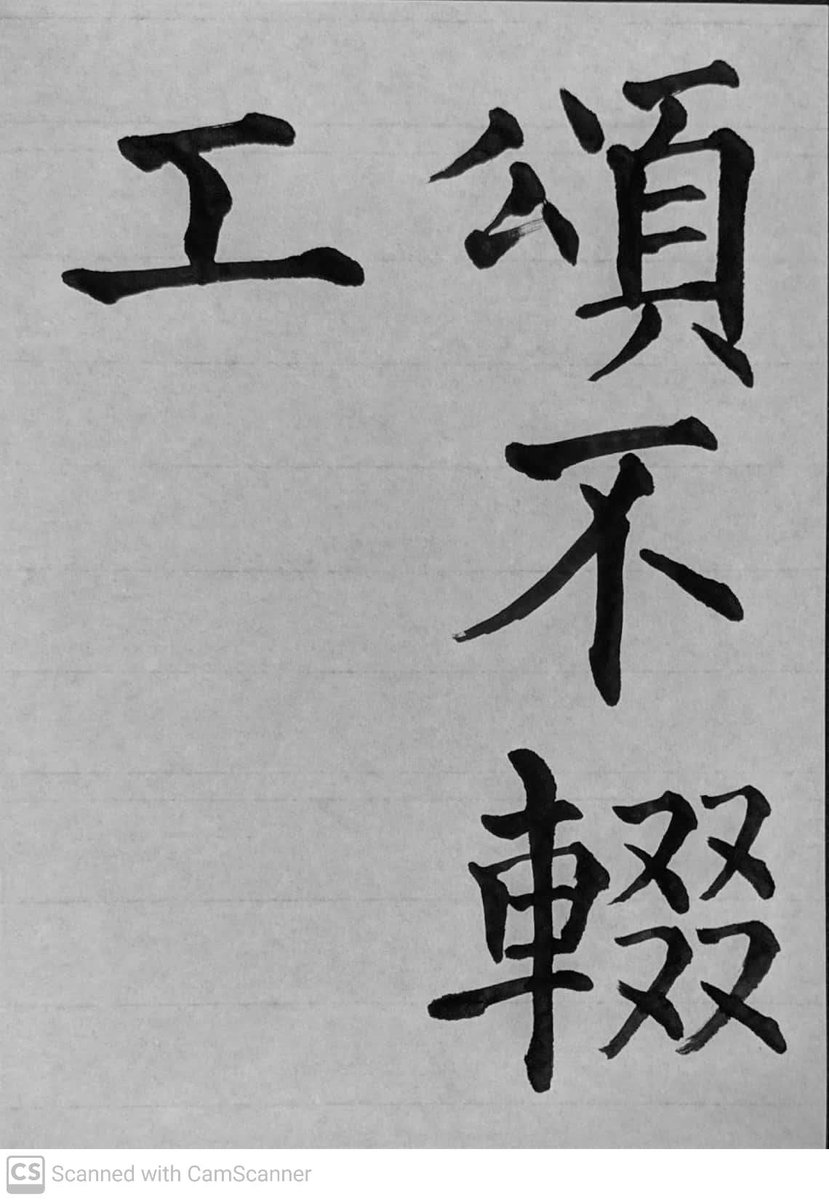 頌不輟
工
CS Scanned with CamScanner